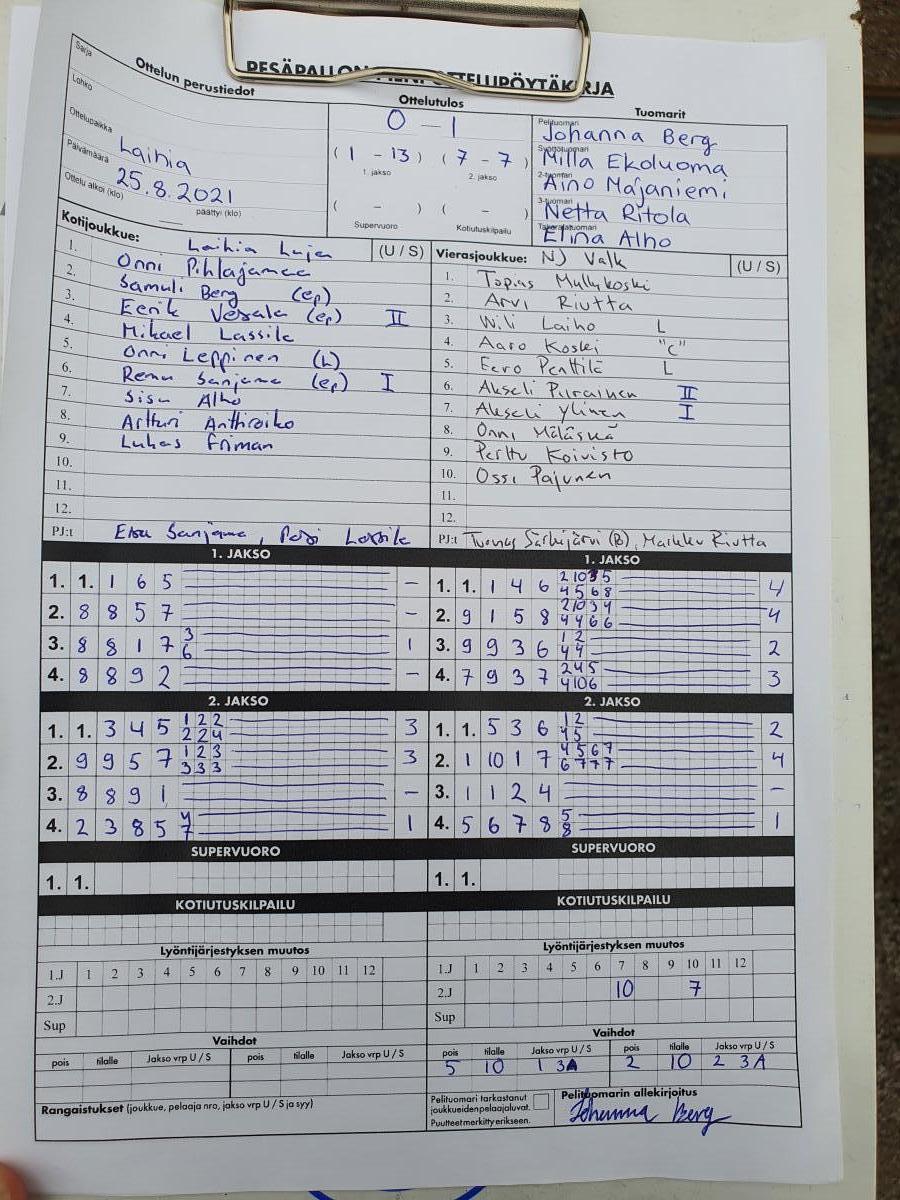 Sarja
Ottelun perustiedot
Lohko
Ottelupaikka
Laihia
Päivämäärä
25.8.2021
Ottelu alkoi (klo)
päättyi (klo)
Ottelutulos
0 - 1
( 1 - 13 ) ( 7 - 7 )
1. jakso 2. jakso
( - ) ( - )
Supervuoro Kotiutuskilpailu
Tuomarit
Pelituomari
Johanna Berg
Milla Ekoluoma
2-tuomari
Aino Majaniemi
3-tuomari
Netta Ritola
Takarajatuomari
Elina Alho
Kotijoukkue: Laihia Luja (U / S)
1. Onni Pihlajamaa
2. Samuli Berg (ep)
3. Eerik Vesala (ep) II
4. Mikael Lassila
5. Onni Leppinen (L)
6. Remu Sanjama (ep) I
7. Sisu Alho
8. Artturi Anthroiko
9. Luhas Friman
10.
11.
12.
PJ:t Esa Sanjama, Pasi Lassila
Vierasjoukkue: NJ Valk (U / S)
1. Topias Myllykoski
2. Arvi Riutta
3. Wili Laiho L
4. Aaro Koski "C"
5. Eero Penttilä L
6. Akseli Puirainen II
7. Akseli Ylinen I
8. Onni Mäläskä
9. Perttu Koivisto
10. Ossi Pajunen
11.
12.
PJ:t Tuomas Särkijärvi (B), Markku Riutta
1. JAKSO
1. 1. 1 6 5 -
2. 8 8 5 7 -
3. 8 8 1 7 3 1
6
4. 8 8 9 2 -
2. JAKSO
1. 1. 3 4 5 1 2 2 3
2 2 4
2. 9 9 5 7 1 2 3 3
3 3 3
3. 8 8 9 1 -
4. 2 3 8 5 4 1
7
SUPERVUORO
1. 1.
KOTIUTUSKILPAILU
Lyöntijärjestyksen muutos
1.J 1 2 3 4 5 6 7 8 9 10 11 12
2.J
Sup
Vaihdot
pois tilalle Jakso vrp U / S pois tilalle Jakso vrp U / S
Rangaistukset (joukkue, pelaaja nro, jakso vrp U / S ja syy)
1. JAKSO
1. 1. 1 4 6 2 10 3 5 4
4 5 6 8
2. 9 1 5 8 2 10 3 4 4
4 4 6 6
3. 9 9 3 6 1 2 2
4 4
4. 7 9 3 7 2 4 5 3
4 10 6
2. JAKSO
1. 1. 5 3 6 1 2 2
4 5
2. 1 10 1 7 4 5 6 7 4
6 7 7 7
3. 1 1 2 4 -
4. 5 6 7 8 5 1
8
SUPERVUORO
1. 1.
KOTIUTUSKILPAILU
Lyöntijärjestyksen muutos
1.J 1 2 3 4 5 6 7 8 9 10 11 12
2.J 10 7
Sup
Vaihdot
pois tilalle Jakso vrp U / S pois tilalle Jakso vrp U / S
5 10 1 3A 2 10 2 3A
Pelituomari tarkastanut
joukkueiden pelaajaluvat.
Puutteet merkitty erikseen.
Pelituomarin allekirjoitus
Johanna Berg